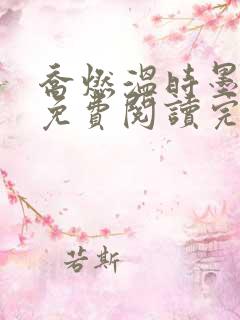 喬燃溫時墨
免費閱讀完
若斯